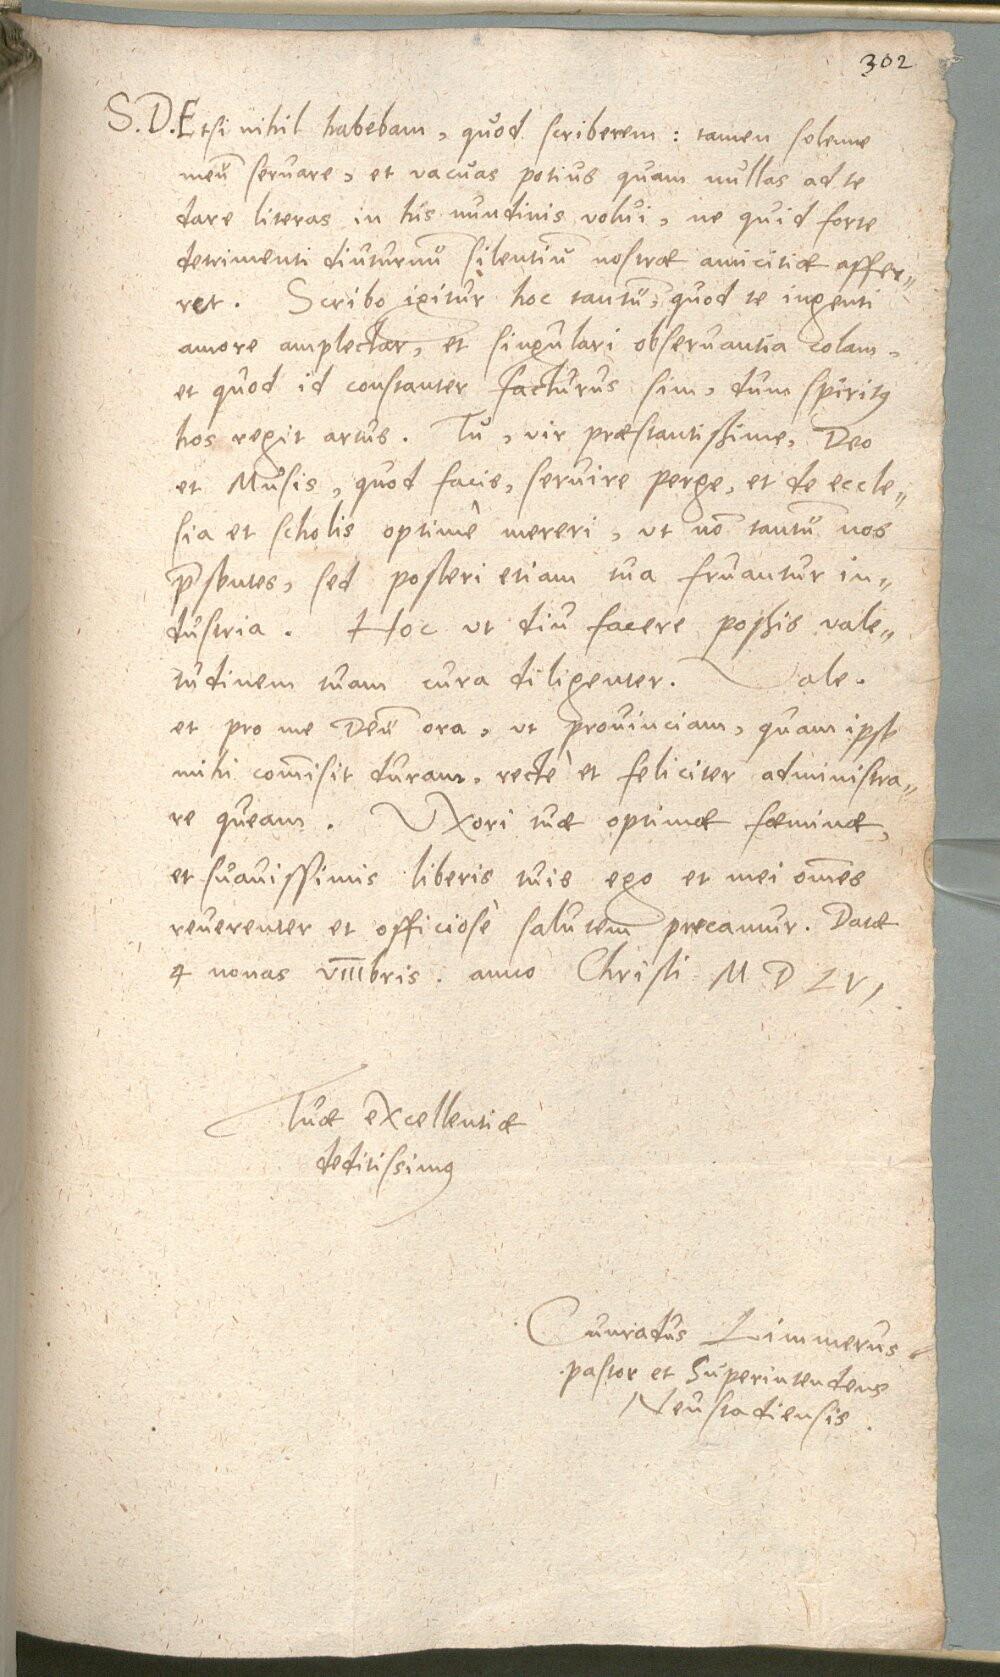 302
S. D. Etsi nihil habebam, quod scriberem : tamen solenne
meū seruare, et vacuas potius quam nullas ad te
dare literas in his nundinis volui, ne quid forte
detrimenti diuturnū silentiū nostræ amicitiæ affer„
ret. Scribo igitur hoc tantū, quod te ingenti
amore amplectar, et singulari obseruantia colam,
et quod id constanter facturus sim, dum spiritꝯ
hos regit artus. Tu, vir præstantißime, Deo
et Musis, quod facis, seruire perge, et de eccle„
sia et scholis optimè mereri, vt nō tantū nos
p̄sentes, sed posteri etiam tua fruantur in„
dustria. Hoc vt diu facere poßis vale„
tudinem tuam cura diligenter. Vale.
et pro me Deū ora, vt prouinciam, quam ipse
mihi com̄isit duram, rectè et feliciter administra„
re queam. Vxori tuæ optimæ fœminæ,
et suauissimis liberis tuis ego et mei om̄es
reuerenter et officiosè salutem precamur. Datæ
4 nonas VIIIbris. anno Christi M D LV,
Tuæ excellentiæ
deditissimꝯ
Cunradus Limmerus
pastor et Superintendens
Neustadiensis.